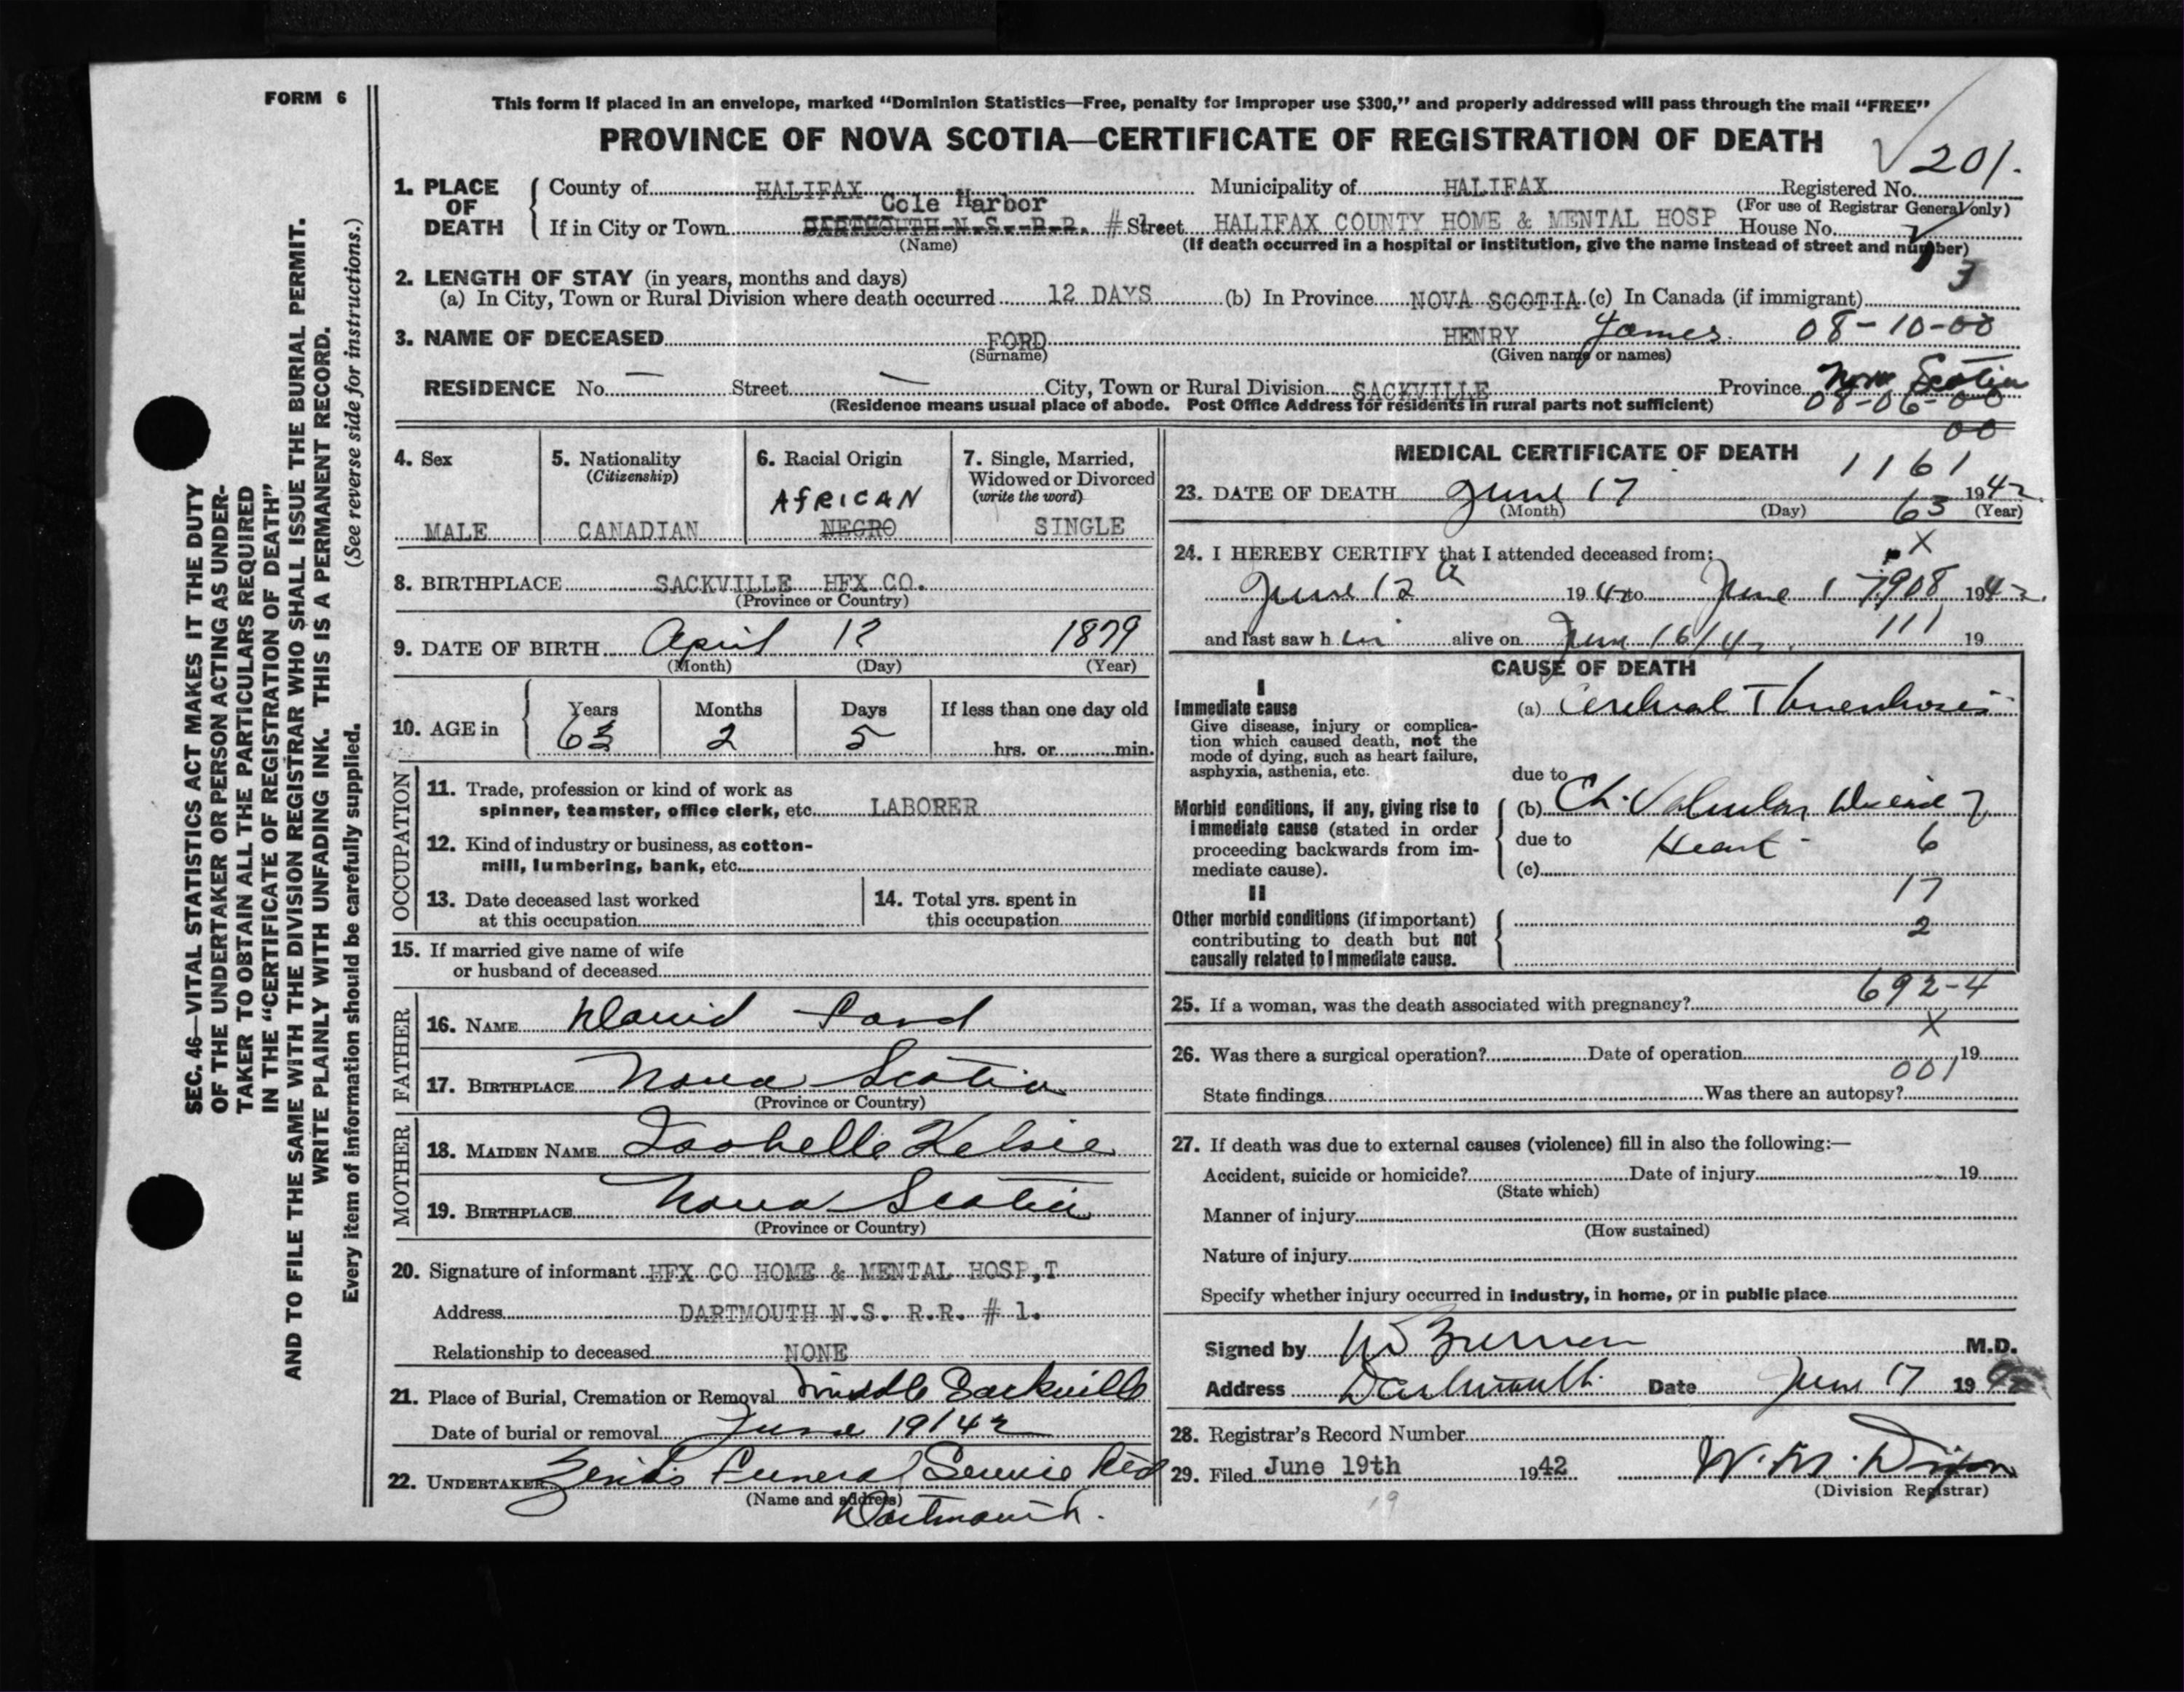 FORM 6
This form if placed in an envelope, marked “Dominion Statistics—Free, penalty for improper use $300,” and properly addressed will pass through the mail “FREE”
PROVINCE OF NOVA SCOTIA—CERTIFICATE OF REGISTRATION OF DEATH
201.
1. PLACE OF DEATH
County of HALIFAX Municipality of HALIFAX Registered No.
(For use of Registrar General only)
Cole Harbor
If in City or Town DARTMOUTH N.S. R.R. # Street HALIFAX COUNTY HOME & MENTAL HOSP House No.
(Name) (If death occurred in a hospital or institution, give the name instead of street and number)
3
2. LENGTH OF STAY (in years, months and days)
(a) In City, Town or Rural Division where death occurred 12 DAYS (b) In Province NOVA SCOTIA (c) In Canada (if immigrant)
3. NAME OF DECEASED FORD HENRY James. 08-10-00
(Surname) (Given name or names)
RESIDENCE No. — Street — City, Town or Rural Division SACKVILLE Province Nova Scotia
(Residence means usual place of abode. Post Office Address for residents in rural parts not sufficient) 08-06-00
00
4. Sex MALE
5. Nationality (Citizenship) CANADIAN
6. Racial Origin AFRICAN NEGRO
7. Single, Married, Widowed or Divorced (write the word) SINGLE
8. BIRTHPLACE SACKVILLE HFX CO.
(Province or Country)
9. DATE OF BIRTH April 12 1879
(Month) (Day) (Year)
10. AGE in Years 63 Months 2 Days 5 If less than one day old hrs. or min.
OCCUPATION
11. Trade, profession or kind of work as spinner, teamster, office clerk, etc. LABORER
12. Kind of industry or business, as cotton-mill, lumbering, bank, etc.
13. Date deceased last worked at this occupation
14. Total yrs. spent in this occupation
15. If married give name of wife or husband of deceased
FATHER
16. NAME David Ford
17. BIRTHPLACE Nova Scotia
(Province or Country)
MOTHER
18. MAIDEN NAME Isobelle Kelsie
19. BIRTHPLACE Nova Scotia
(Province or Country)
20. Signature of informant HFX CO HOME & MENTAL HOSP,T
Address DARTMOUTH N.S. R.R. # 1.
Relationship to deceased NONE
21. Place of Burial, Cremation or Removal Middle Sackville
Date of burial or removal June 19/42
22. UNDERTAKER Funeral Service Ltd
(Name and address)
Dartmouth.
MEDICAL CERTIFICATE OF DEATH
1161
23. DATE OF DEATH June 17 1942.
(Month) (Day) (Year)
63
X
24. I HEREBY CERTIFY that I attended deceased from:
June 12 1942 to June 17 1942.
908
and last saw h im alive on June 16/42. 19
111
CAUSE OF DEATH
I
Immediate cause
Give disease, injury or complication which caused death, not the mode of dying, such as heart failure, asphyxia, asthenia, etc.
(a) Cerebral Thrombosis
due to
Morbid conditions, if any, giving rise to immediate cause (stated in order proceeding backwards from immediate cause).
(b) Ch. Valvular Disease of
due to Heart - 6
(c)
17
II
Other morbid conditions (if important) contributing to death but not causally related to immediate cause.
2
692-4
25. If a woman, was the death associated with pregnancy?
X
26. Was there a surgical operation? Date of operation 19
001
State findings Was there an autopsy?
27. If death was due to external causes (violence) fill in also the following:—
Accident, suicide or homicide? Date of injury 19
(State which)
Manner of injury
(How sustained)
Nature of injury
Specify whether injury occurred in industry, in home, or in public place
Signed by M.D.
Address Dartmouth. Date June 17 1942
28. Registrar’s Record Number
29. Filed June 19th 1942 W. M. Dixon
(Division Registrar)
19
SEC. 46—VITAL STATISTICS ACT MAKES IT THE DUTY
OF THE UNDERTAKER OR PERSON ACTING AS UNDER-
TAKER TO OBTAIN ALL THE PARTICULARS REQUIRED
IN THE “CERTIFICATE OF REGISTRATION OF DEATH”
AND TO FILE THE SAME WITH THE DIVISION REGISTRAR WHO SHALL ISSUE THE BURIAL PERMIT.
WRITE PLAINLY WITH UNFADING INK. THIS IS A PERMANENT RECORD.
Every item of information should be carefully supplied. (See reverse side for instructions.)